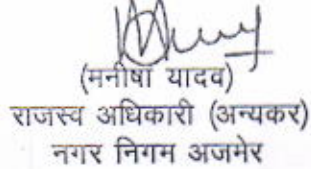 (मनीषा यादव)
राजस्व अधिकारी (अन्यकर)
नगर निगम अजमेर